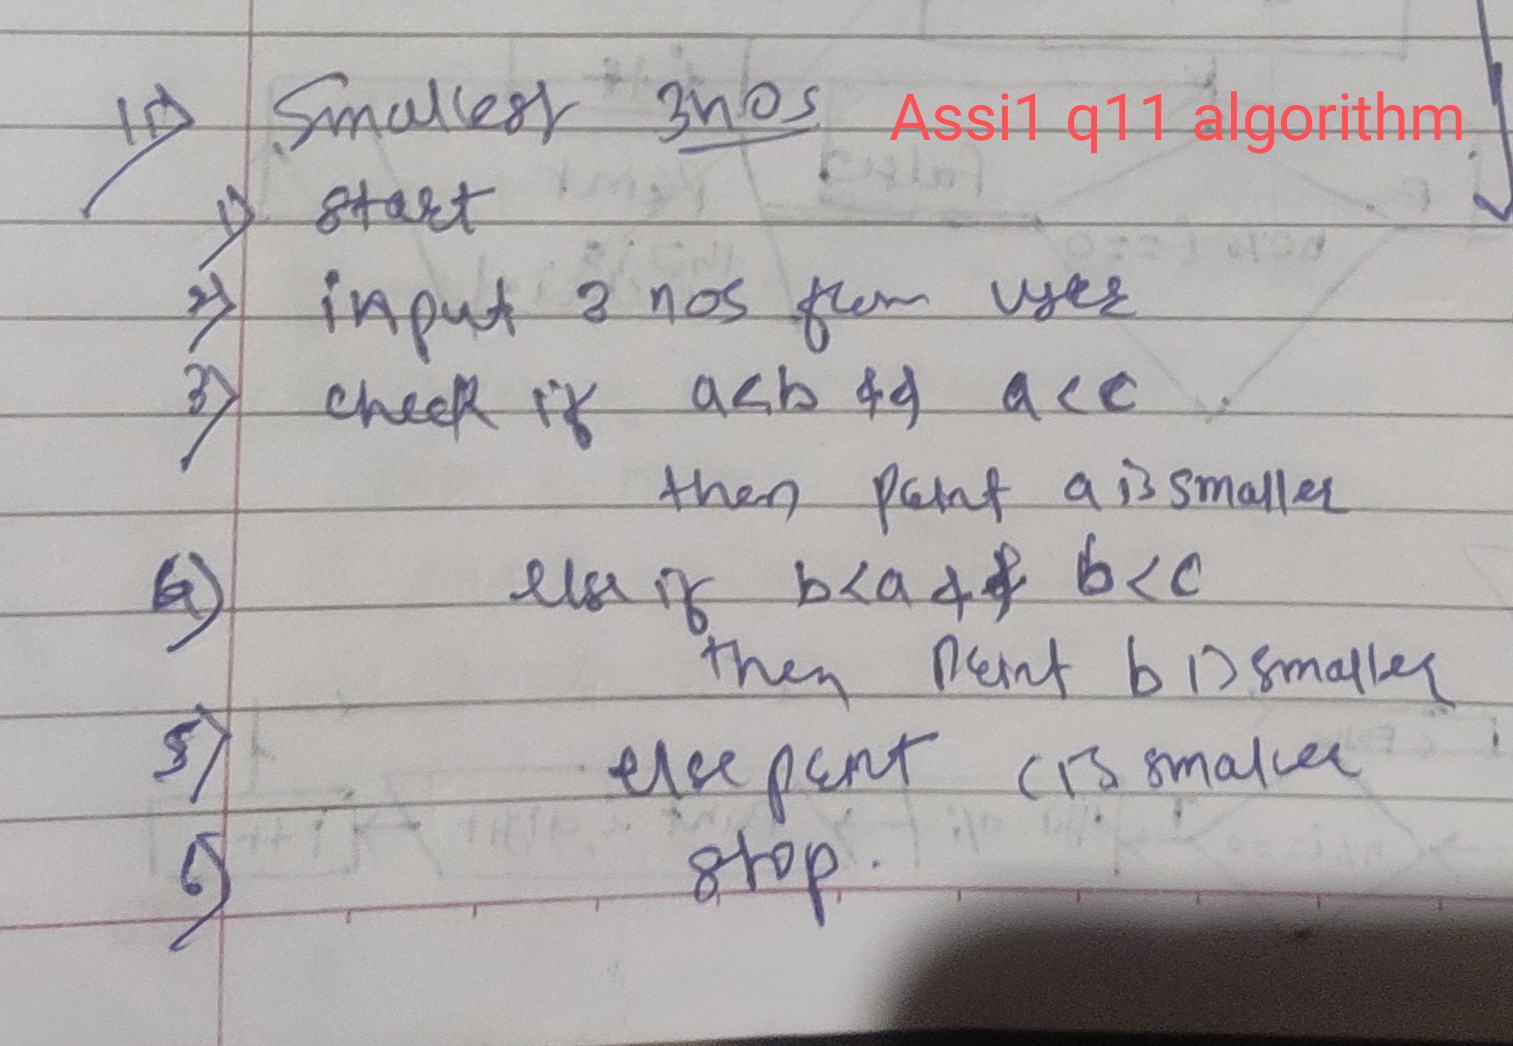 11) Smallest 3nos
Assi1 q11 algorithm
1) start
2) input 3 nos from user
3) check if a<b && a<c
then print a is smaller
4) else if b<a && b<c
then print b is smaller
5) else print c is smaller
6) stop.